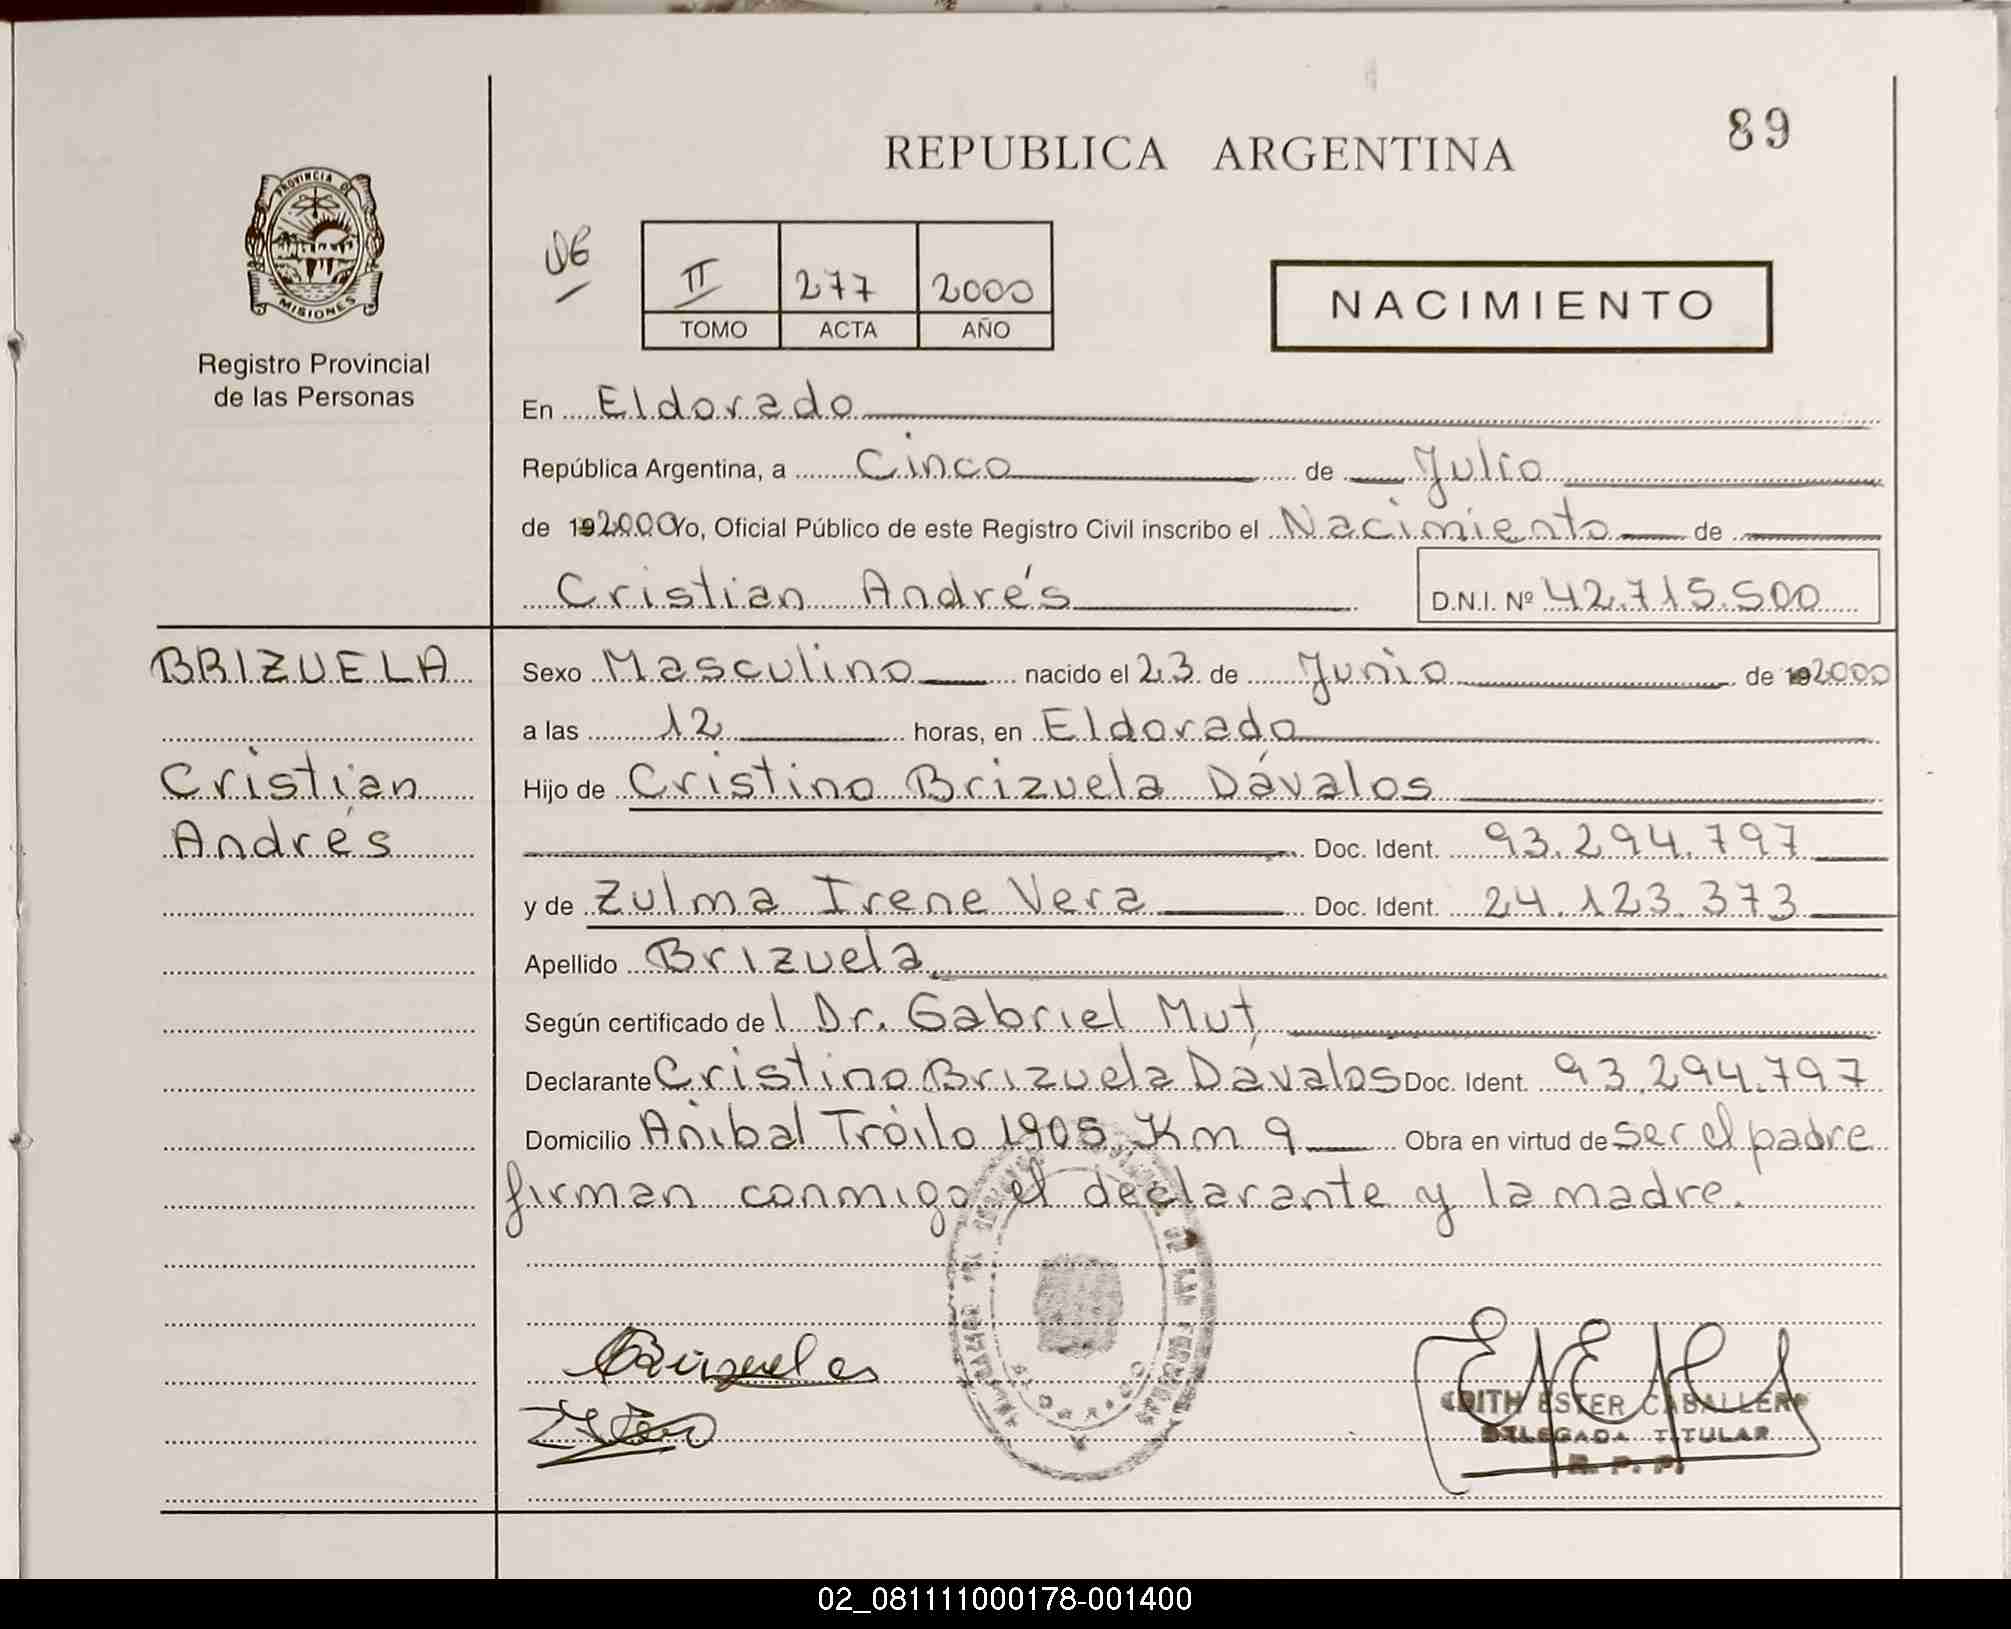 89
REPUBLICA ARGENTINA
PROVINCIA DE
MISIONES
Registro Provincial
de las Personas
II 277 2000
TOMO ACTA AÑO
NACIMIENTO
En Eldorado
República Argentina, a Cinco de Julio
de 192000 Yo, Oficial Público de este Registro Civil inscribo el Nacimiento de
Cristian Andrés D.N.I. Nº 42.715.500
BRIZUELA
Cristian
Andrés
Sexo Masculino nacido el 23 de Junio de 192000
a las 12 horas, en Eldorado
Hijo de Cristino Brizuela Dávalos
Doc. Ident. 93.294.797
y de Zulma Irene Vera Doc. Ident. 24.123.373
Apellido Brizuela
Según certificado del Dr. Gabriel Mut
Declarante Cristino Brizuela Dávalos Doc. Ident. 93.294.797
Domicilio Aníbal Tróilo 1905 Km 9 Obra en virtud de ser el padre
firman conmigo el declarante y la madre.
Brizuela
EDITH ESTER CABALLERO
DELEGADA TITULAR
R. P. P.
ELDORADO
02_081111000178-001400